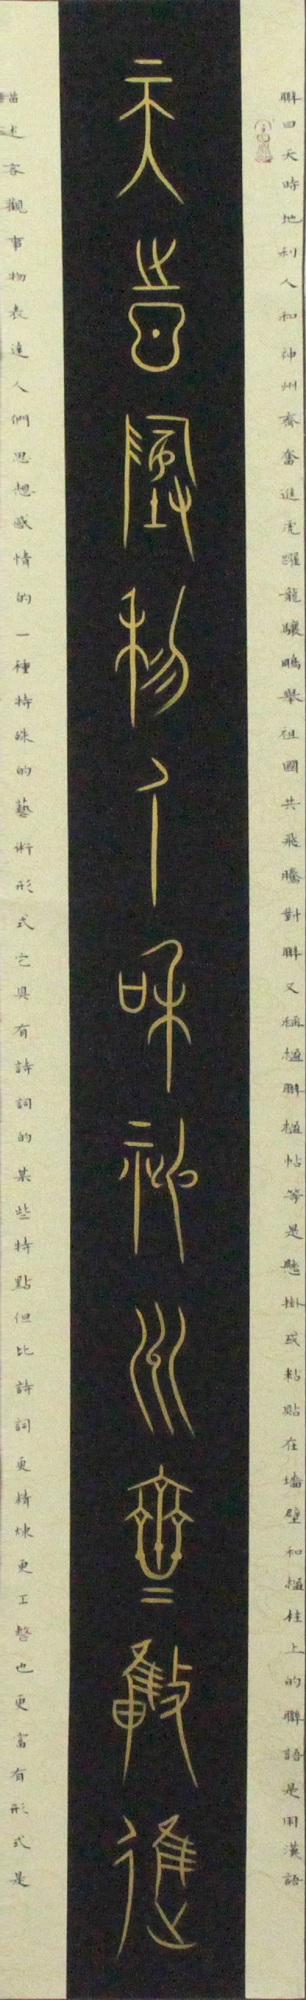 聯曰天時地利人和神州齊奮進虎躍龍驤鵬舉祖國共飛騰對聯又稱楹聯楹帖等是懸掛或粘貼在墻壁和楹柱上的聯語是用漢語
天時地利人和神州齊奮進
描述客觀事物表達人們思想感情的一種特殊的藝術形式它具有詩詞的某些特點但比詩詞更精煉更工整也更富有形式是